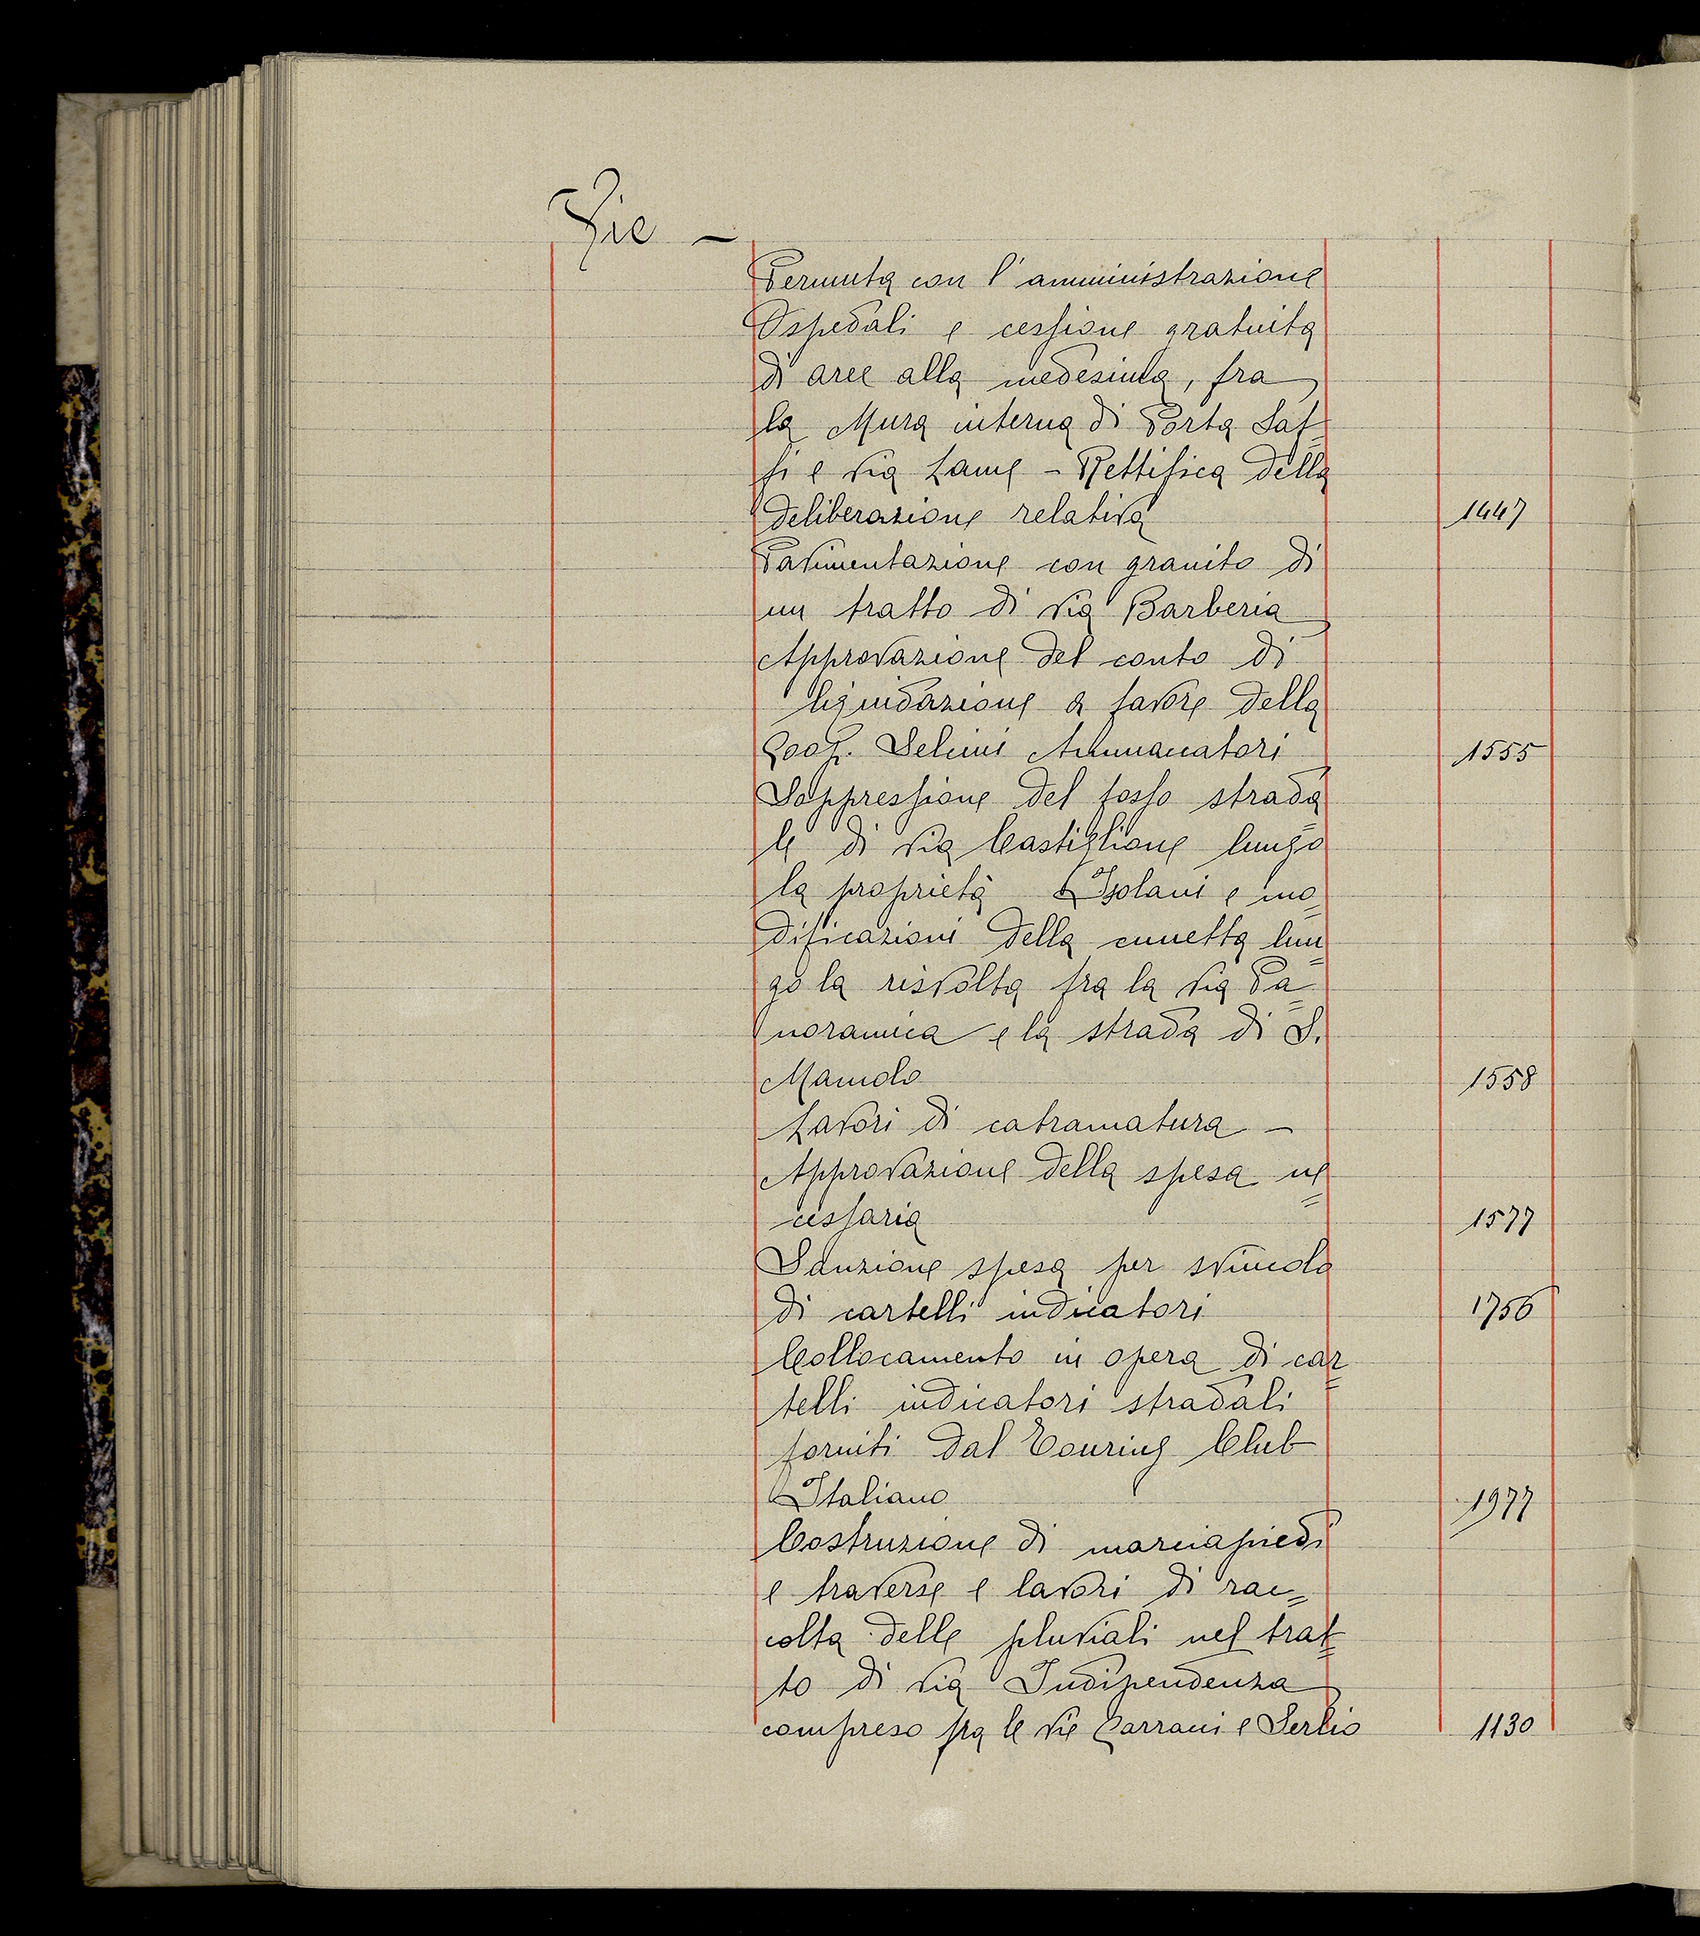 Vie —
Permuta con l'amministrazione
Ospedali e cessione gratuita
di aree alla medesima, fra
la Mura interna di Porta Saf=
fi e via Lame – Rettifica della
deliberazione relativa 1447
Pavimentazione con granito di
un tratto di via Barberia
Approvazione del conto di
liquidazione a favore della
Coop. Selcini Ammanatori 1555
Soppressione del fosso strada=
le di via Castiglione lungo
la proprietà Isolani e mo=
dificazioni della cunetta lun=
go la risvolta fra la via Pa=
noramica e la strada di S.
Mamolo 1558
Lavori di catramatura –
Approvazione della spesa ne=
cessaria 1577
Sanzione spesa per svincolo
di cartelli indicatori 1756
Collocamento in opera di car=
telli indicatori stradali
forniti dal Touring Club
Italiano 1977
Costruzione di marciapiedi
e traverse e lavori di rac=
colta delle pluviali nel trat=
to di via Indipendenza
compreso fra le vie Carracci e Serlio 1130